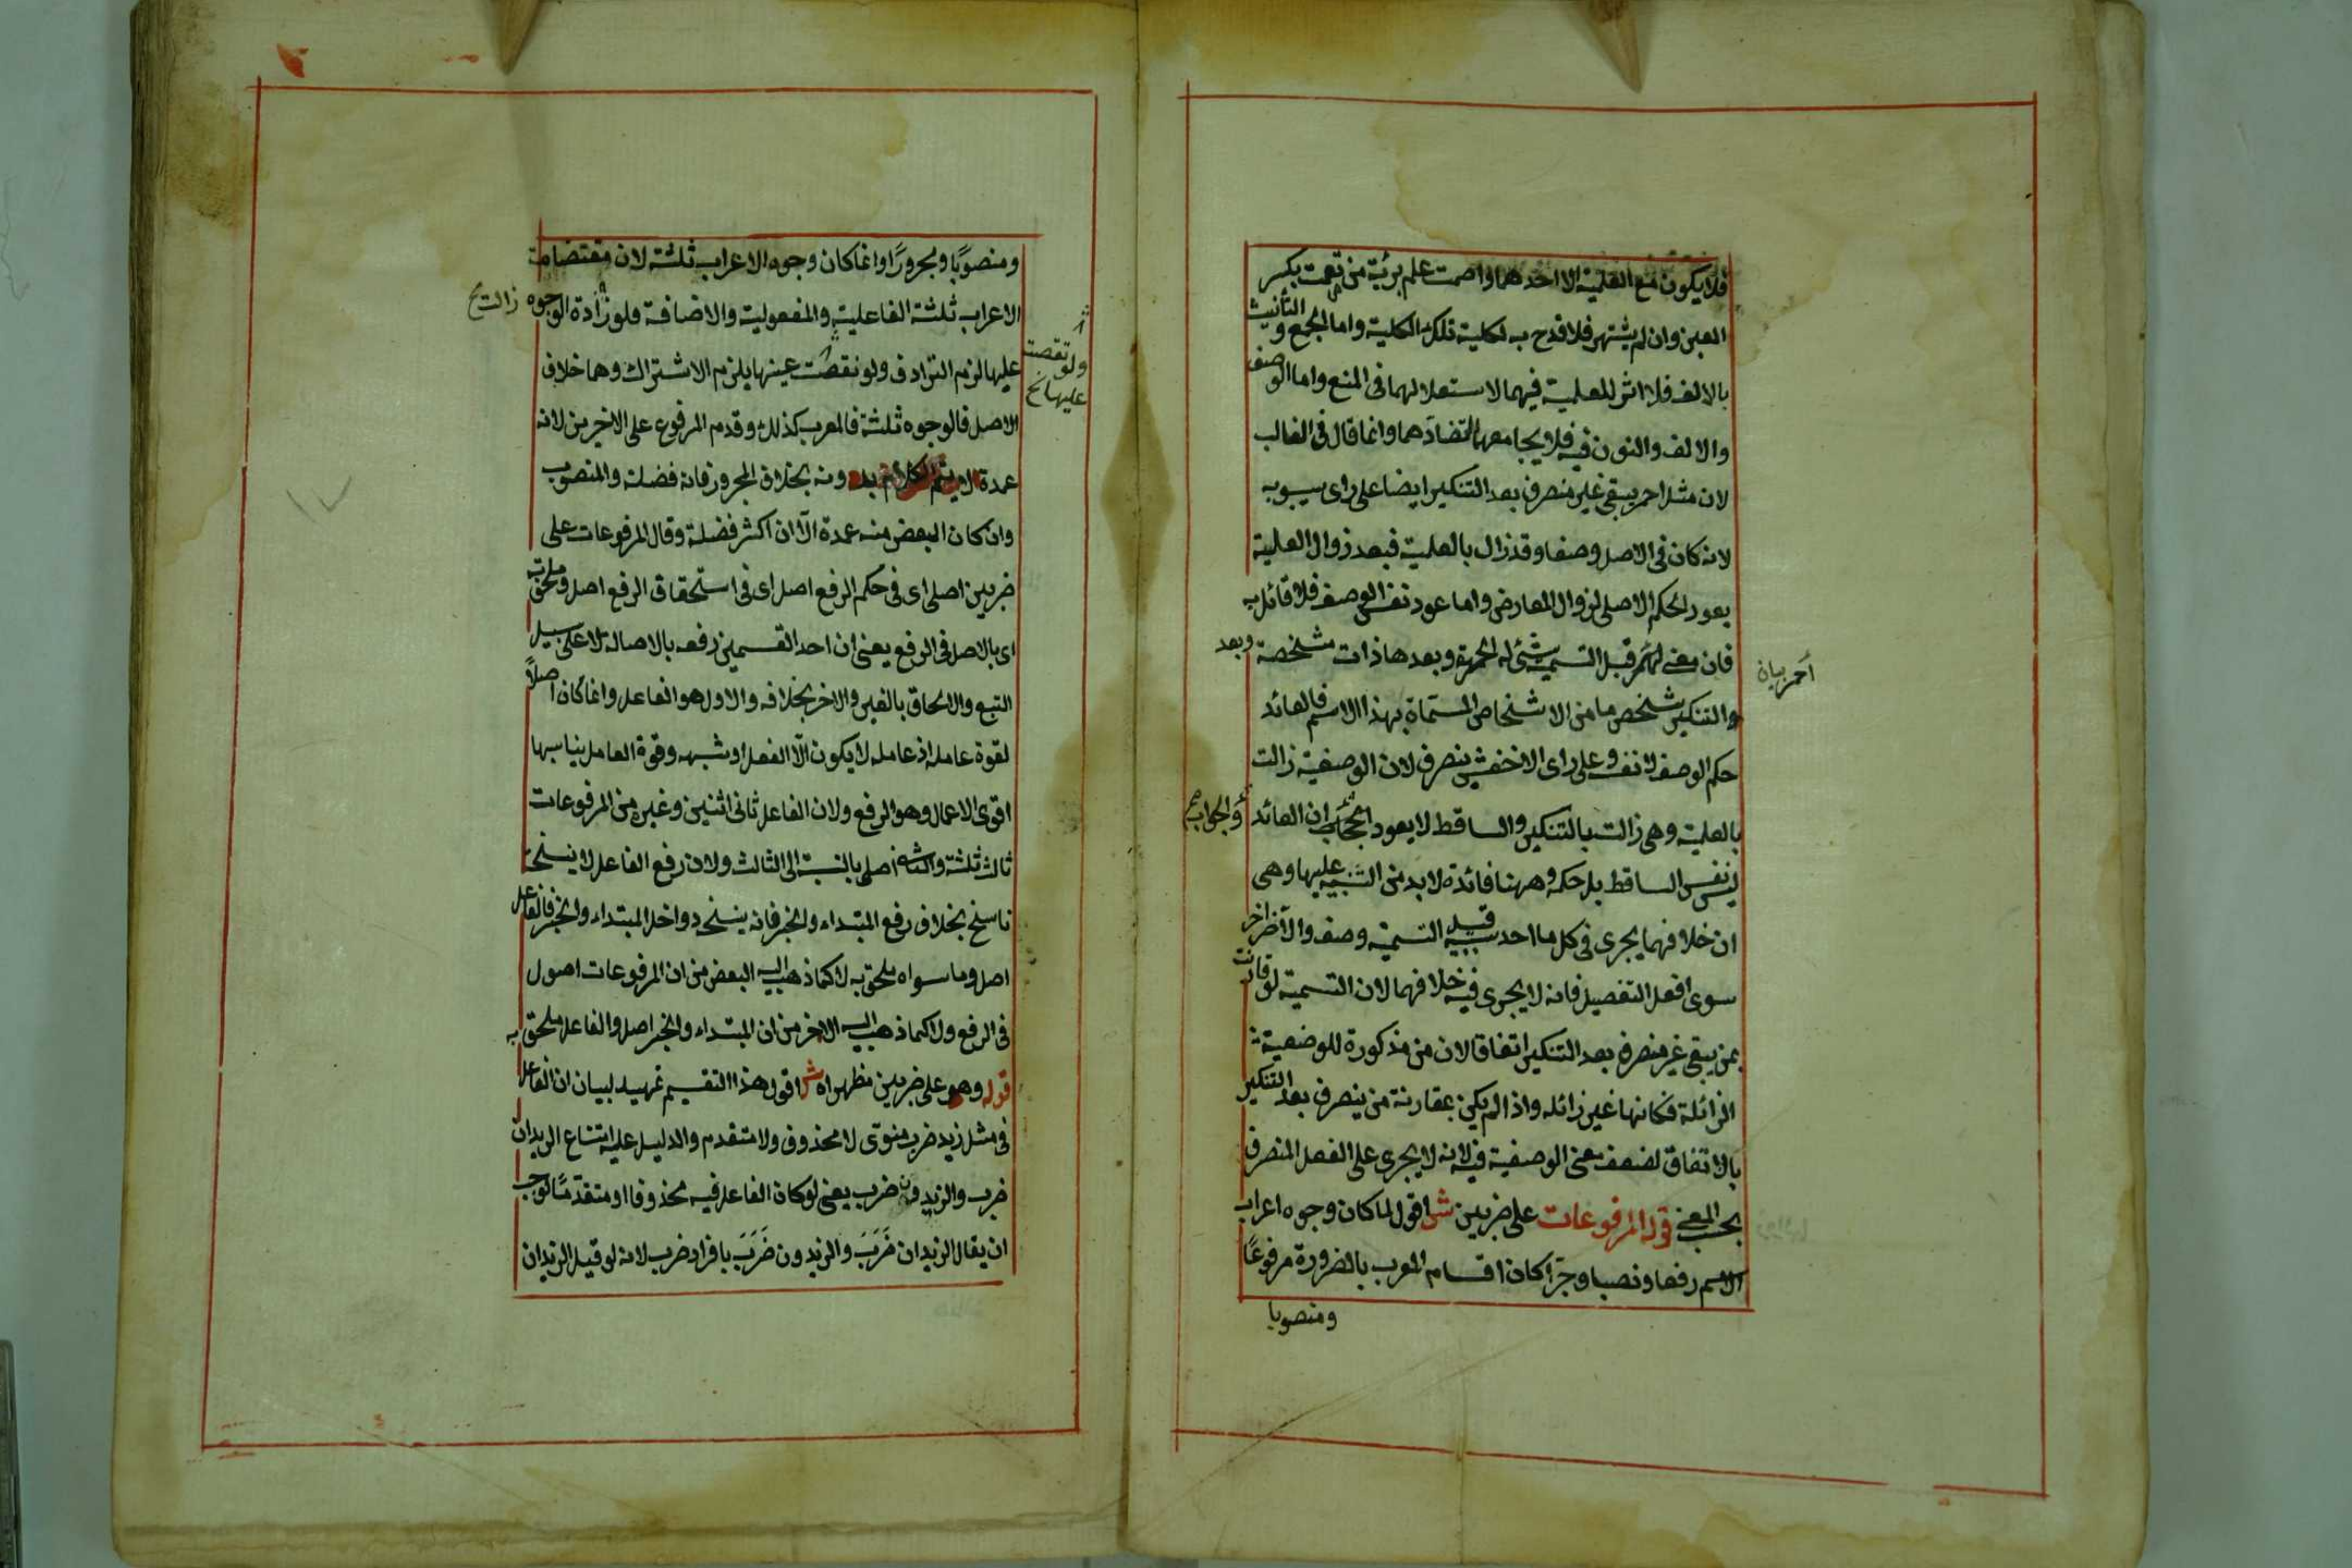 فلا يكون مع العلمية الا احدهما واصمت علم برئية من تصمت بكسر
العين وان لم يشتهر فلا قدح به لكلية تلك الكلية واما الجمع والتأنيث
بالالف فلا اثر للعلمية فيهما لاستعلالهما فى المنع واما الوصف
والالف والنون فيه فلا يجامعها لتضادهما وانما قال فى الغالب
لان مثل احمر يبقى غير منصرف بعد التنكير ايضا على راى سيبويه
لانه كان فى الاصل وصفا وقد زال بالعلمية فبعد زوال العلمية
يعود الحكم الاصلى لزوال المعارض واما عود نفس الوصف فلا قائل به
فان معنى احمر قبل التسمية شئ له الحمرة وبعدها ذات مشخصة وبعد
احمر بيان
والتنكير شخص ما من الاشخاص المسماة بهذا الاسم فالعائد
حكم الوصف لا نفسه وعلى راى الاخفش ينصرف لان الوصفية زالت
بالعلمية وهى زالت بالتنكير والساقط لا يعود ان العائد
والجواب صح
ليس نفس الساقط بل حكمه وههنا فائدة لا بد من التنبيه عليها وهى
ان خلافهما يجرى فى كل ما احد سببيه قبل التسمية وصف والآخر اخر
سوى افعل التفضيل فانه لا يجرى فيه خلافهما لان التسمية لو قارنت
بمن يبقى غير منصرف بعد التنكير اتفاقا لان من مذكورة للوصفية
الزائلة فكانها غير زائلة واذا لم يكن بمقارنة من ينصرف بعد التنكير
بالاتفاق لضعف معنى الوصفية فيه لانه لا يجرى على الفعل المنصرف
بحسب المعنى قوله المرفوعات على ضربين ش اقول لما كان وجوه اعراب
الاسم رفعا ونصبا وجرّا كان اقسام المعرب بالضرورة مرفوعًا
ومنصوبا
ومنصوبًا ومجرورًا وانما كان وجوه الاعراب ثلثة لان مقتضيات
الاعراب ثلثة الفاعلية والمفعولية والاضافة فلو زادة الوجوه
زالت خ
عليها لزم الترادف ولو نقصت عنها يلزم الاشتراك وهما خلاف
ولو نقصت
عليها خ
الاصل فالوجوه ثلثة فالمعرب كذلك وقدم المرفوع على الاخرين لانه
عمدة لا يتم الكلام بدونه بخلاف المجرور فانه فضلة والمنصوب
وان كان البعض منه عمدة الّا ان اكثر فضلة وقال المرفوعات على
ضربين اصلى اى فى حكم الرفع اصل اى فى استحقاق الرفع اصل وملحق به
اى بالاصل فى الرفع يعنى ان احد القسمين رفعه بالاصالة لا على سبيل
التبع والالحاق بالغير والاخر بخلافه والاول هو الفاعل وانما كان اصلاً
لقوة عامله اذ عامله لا يكون الّا الفعل او شبهه وقوة العامل يناسبها
اقوى الاعمال وهو الرفع ولان الفاعل ثانى اثنين وغيره من المرفوعات
ثالث ثلثة اصل بالنسبة الى الثالث ولان رفع الفاعل لا ينسخه
ناسخ بخلاف رفع المبتداء والخبر فانه ينسخه دواخل المبتداء والخبر فالفاعل
اصل وما سواه ملحق به لا كما ذهب اليه البعض من ان المرفوعات اصول
فى الرفع ولا كما ذهب اليه الاخر من ان المبتداء والخبر اصل والفاعل ملحق به
قوله وهو على ضربين مظهر اه ش اقول هذا التقسيم تمهيد لبيان ان الفاعل
فى مثل زيد ضرب منوى لا محذوف ولا متقدم والدليل عليه امتناع الزيدان
ضرب والزيدون ضرب يعنى لو كان الفاعل فيه محذوفا او متقدّمًا لوجب
ان يقال الزيدان ضَرَبَ والزيدون ضَرَبَ بافراد ضرب لانه لو قيل الزيدان